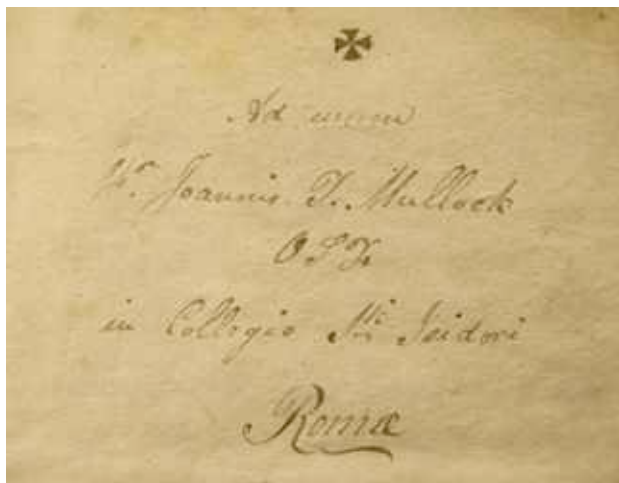 ✠
Ad usum
Fr. Joannis T. Mullock
O S F.
in Collegio Sti Isidori
Romæ